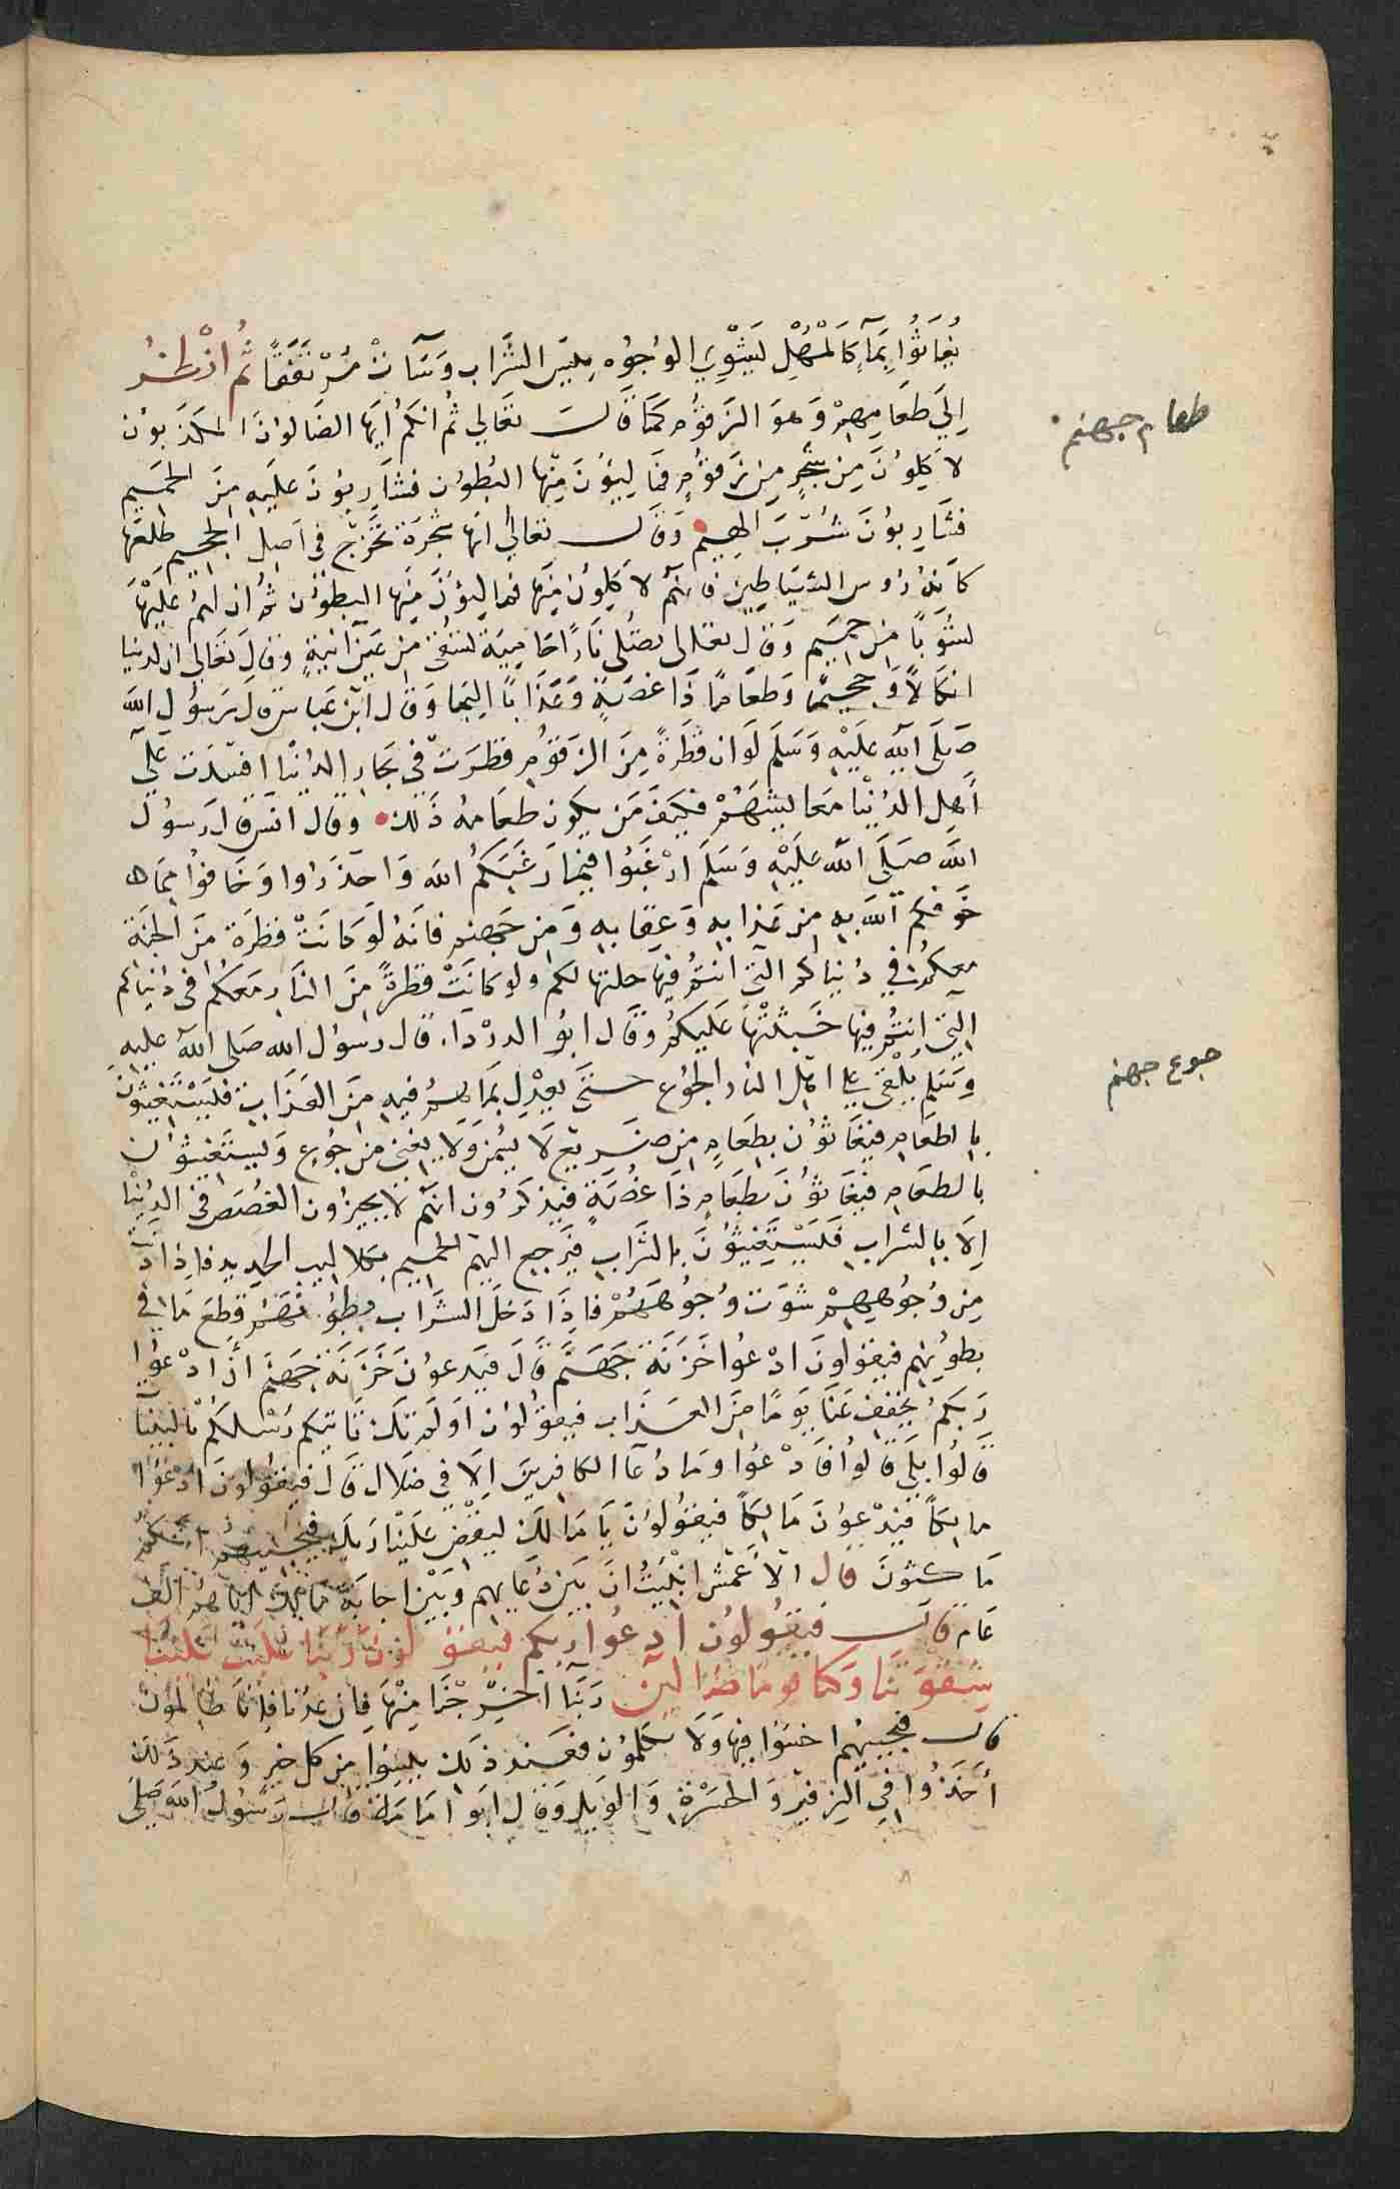 يُغَاثُوا بِمَآءٍ كَالْمُهْلِ يَشْوِي الوُجُوه بِئْسَ الشَّرَاب وَسَآءتْ مُرْتَفَقًا ثُم انْظُرُ
اِلَي طَعَامِهِمْ وَهوَ الزَقوُم كَمَا قَالَ تعَالي ثُم انكُم ايَها الضَالوُنَ المكَذِبوُن
لاَكِلوُنَ مِن شَجَرٍ مِن زَقوُمٍ فمَاليؤُنَ مِنْها البُطوُن فشَارِبوُنَ عَليَهِ مِنَ الحَمِيم
فشَارِبوُنَ شُرْبَ الهِيِم وَقَال تعَالي انهَا شجَرَة تخَرْجُ فى اَصِل الجَحِيم طَلعُهَا
كاَنهُ رُؤس الشيَاطِين فانهُم لاَكِلوُن مِنَها فمَاليؤُنَ مِنَها البطوُن ثُم ان لهُم عَليَهْا
لشَوبًا مِن حَميِم وَقَال تعَالى تصْلَى نَارًا حَامِيَة تسْقىَ مِن عَيْن انيَةٍ وقال تعَالي ان لدَينا
انكَالاً وَجَحِيمًا وَطعَامًا ذَا غصَةٍ وَعَذَابًا الِيمَا وَقَال ابْن عَباس قال رَسوُل الله
صَلَى الله عَليَْهِ وَسَلمَ لَو ان قطَرَةً مِنَ الزَقوُم قطَرَتْ في بحَار الدُنْيا افسَدَت علَى
اَهِل الدُنْيا مَعَايِشَهُمْ فكيَفَ مَن يكون طعَامهُ ذَلك وقال انَس قال رَسوُل
الله صَلَى الله عَليَْهِ وَسَلَمَ ارْغَبُوا فيِمَا رَغَبَكُم الله وَاحذَرُوا وَخَافوُا مِمَا
خَوفكُم الله بهِ مِن عَذابهِ وَعِقابهِ وَمِن جَهنم فانَهُ لَو كانَتْ قطرَة مِنَ الجنَة
معكُم في دُنياكم التى انتُم فيهَا حلتها لكم ولو كانَتْ قطرَةً مِنَ النَار معَكُم فى دُنياكم
التى انتُم فيها خَبَثتْهَا عَليكُم وقَال ابُو الدرْدَاء قال رسوُل الله صَلى الله عليهِ
وَسَلم يُلْقَى على اهَل النار الجوُع حتىَ يعدِل بمَا هُم فيهِ مِنَ العَذَاب فيَسْتَغيِثوُن
بالطعَام فيغَاثوُن بطعَامٍ مِن ضَريَع لاَ يُسْمِن وَلاَ يغنِى مِن جُوع وَيستَغيثوُن
بالطعَام فيغَاثوُنَ بطعَام ذَا غُصَةٍ فيَذكرُون انهُم لا يجيزُون الغُصَصَ فى الدُنْيا
اِلاَ بالشراب فَيَسْتَغِيثوُنَ بالشَرَابِ فيَرجع اليهُم الحَميم بكلاليِب الحديد فاذا دَنَت
مِن وُجُوهِهِمْ شوَت وُجُوهَهُمْ فاذَا دَخَل الشَرَاب بُطوُنهَمُ قطعَ مَا في
بطوُنهِم فيقولونَ ادْعُوا خَزَنَة جَهَنَّم قَالَ فيَدعوُنَ خَزَنَة جَهنَم اَن ادْعوُا
رَبكُم يخفِف عَنَا يوَمًا مِنَ العَذَاب فيَقوُلوُن اوَلَم تكُ تَاتيكم رُسُلكُمْ بالبيَنَات
قَالوُا بلَى قَالوُا فَادْعوُا وَمَا دُعَآ الكافِريِنَ اِلاَ في ضَلاَل قَال فيقوُلونَ ادْعوُا
مَالِكاً فيَدْعوُنَ مَالِكاً فيقوُلوُنَ يَا مَالكُ ليقْضِ عَليْنَا رَبكَ فيجيبُهمُ انكمُ
مَاكثوُنَ قَال الاَعْمَش انْبيْتُ انَ بيْن دُعَايهِم وَبيْن اجابَة مَالك اياهمُ الَف
عَام قَال فيَقوُلوُن ادعوُا رَبكم فيقوُلوُن رَبَنَا غلَبَتْ عَليْنا
شِقوَتنَا وَكنا قومًا ضَالّين رَبَنَا اخْرِجْنَا مِنْهَا فاِن عُدْنا فاِنَا ظالموُن
قال فيجيبُهم اخسَؤا فيهَا وَلاَ تكَلموُن فعَند ذَلك يئيسوُا مِن كل خير وَعِند ذَلك
أَخَذوُا في الزفيِر وَالحَسْرَةِ وَالوَيل وَقَال ابوُا امَامَة قال رَسوُل الله صَلىَ
طعام جهنم
جوع جهنم